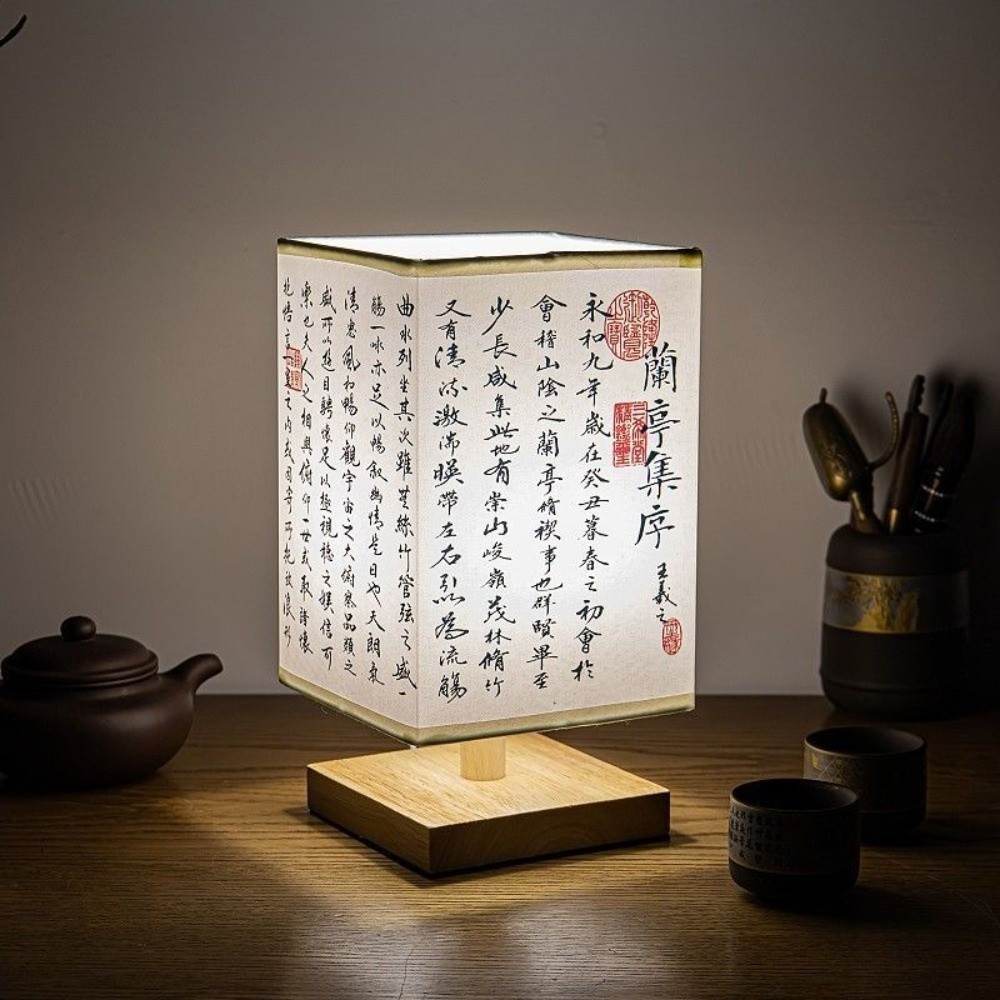 蘭亭集序
王羲之
乾隆御覽之寶
三希堂精鑑璽
永和九年歲在癸丑暮春之初會於
會稽山陰之蘭亭脩禊事也群賢畢至
少長咸集此地有崇山峻嶺茂林脩竹
又有清流激湍暎帶左右引以為流觴
曲水列坐其次雖無絲竹管弦之盛一
觴一咏亦足以暢敘幽情是日也天朗氣
清惠風和暢仰觀宇宙之大俯察品類之
盛所以遊目騁懷足以極視聽之娛信可
樂也夫人之相與俯仰一世或取諸懷
抱悟言一室之内或因寄所託放浪形